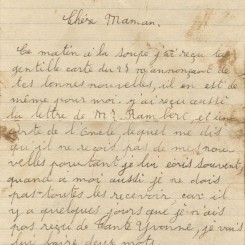 Chère Maman.
Ce matin à la soupe j'ai reçu ta
gentille carte du 23 10 annonçant de
tes bonnes nouvelles, il en est de
même pour moi. j'ai reçu aussi
la lettre de Mr Rambert et une
carte de l'Oncle lequel me dis
qu'il ne reçois pas de mes nou
velles pourtant je lui écris souvent,
quand a moi aussi je ne dois
pas toutes les recevoir, car il
y a quelques jours que je n'ais
pas reçu de Tante Yvonne, je vais
lui faire deux mots